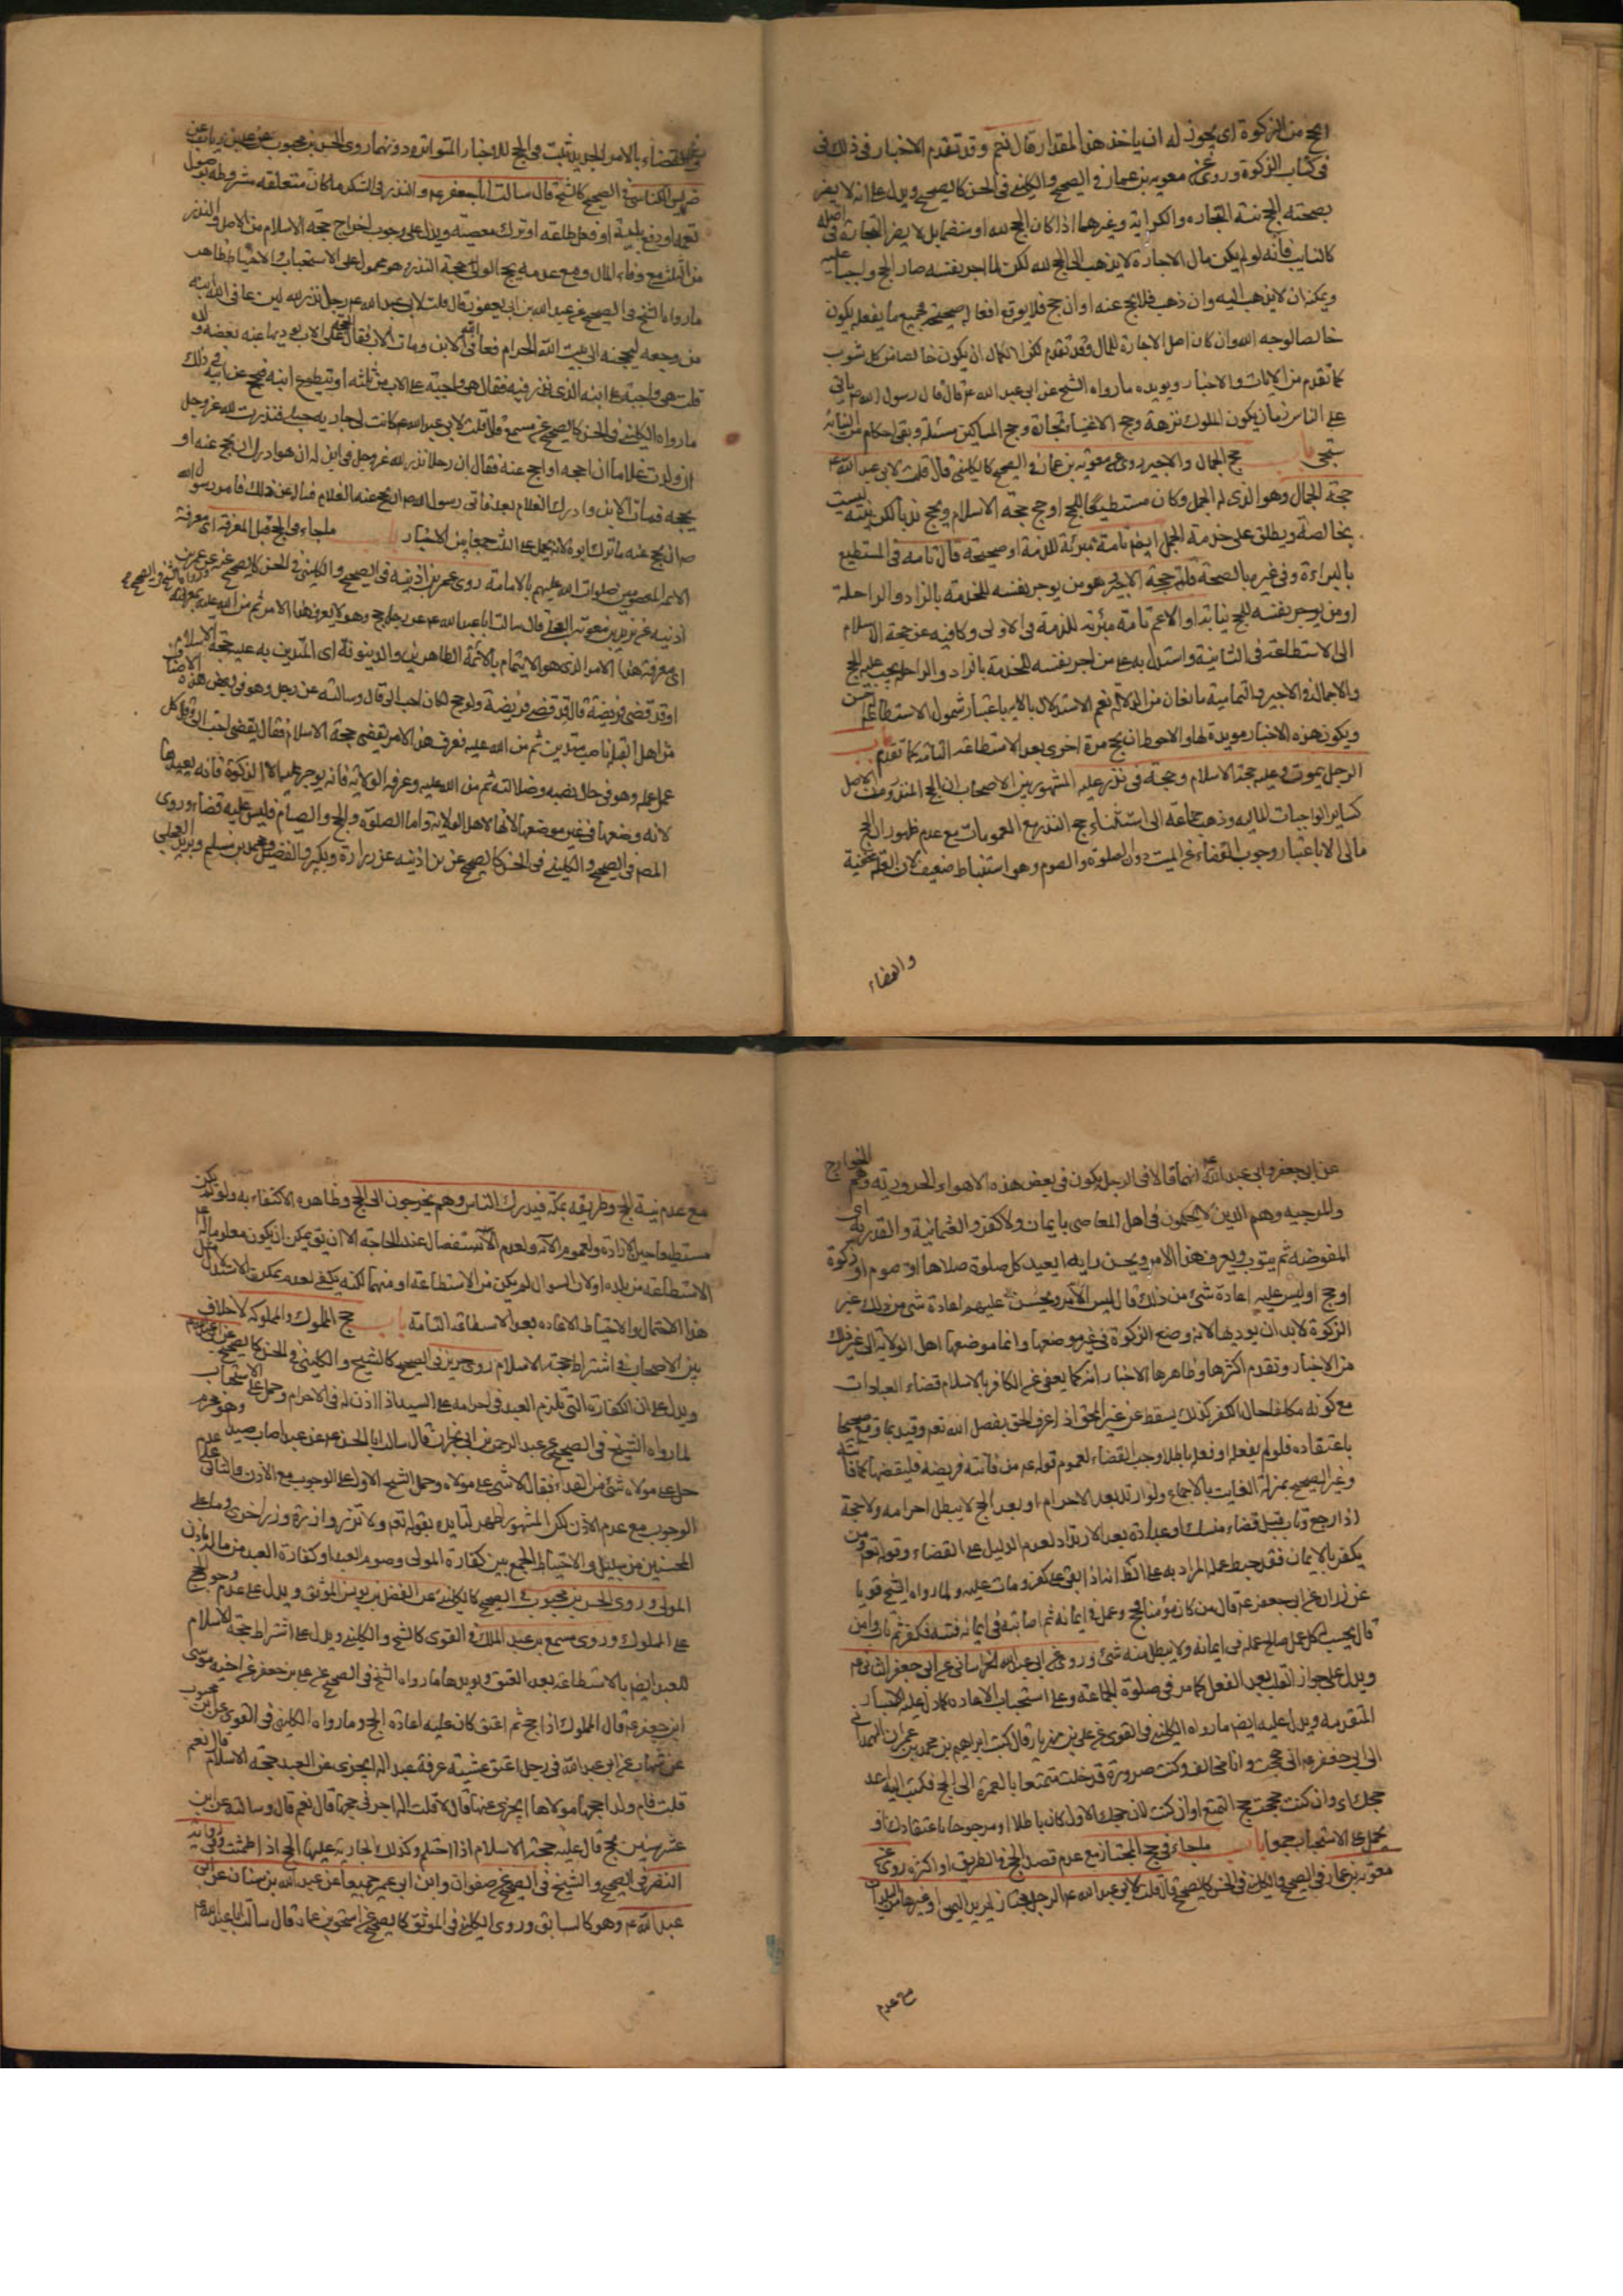 الحج من الزكوة اى يجوز له ان ياخذ هذا المقدار قال نعم وقد تقدم الاخبار فى ذلك فى
فى كتاب الزكوة وروى عن معوية بن عمار فى الصحيح والكلينى فى الحسن كالصحيح ويدل على انه لا يضر
بصحته الحج نية التجاره والكراية وغيرهما اذا كان الحج لله او منضما بل لا يضر التجارة فى اصله
كالنايب فانه لو لم يكن مال الاجارة لا يذهب الى الحج لله لكن لما اجر نفسه صار الحج واجبا عليه
ويمكنه ان لا يذهب اليه وان ذهب فلا يحج عنه او ان حج فلا يوقع افعاله صحيحة فجميع ما يفعله يكون
خالصا لوجه الله وان كان اصل الاجارة للمال وقد تقدم لكن الكمال ان يكون خالصا من كل شوب
كما تقدم من الايات والاخبار ويويده ما رواه الشيخ عن ابى عبد الله ع قال قال رسول الله ص ياتى
على الناس زمان يكون الملوك نزهة وحج الاغنياء تجارة وحج المساكين مسئلة وبقى احكام من النيابة
ستجئ باب حج الجمال والاجير روى عن معوية بن عمار فى الصحيح كالكلينى قال قلت لابى عبد الله ع
حجة الجمال وهو الذى له الجمل وكان مستطيعا للحج او حج حجة الاسلام ويحج ندبا لكن نيته ليست
بخالصة ويطلق على خدمة الجمل ايضا تامة مبرئة للذمة او صحيحة قال تامه فى المستطيع
بالبراءة وفى غيره بالصحة قلت حجة الاجير هو من يوجر نفسه للخدمة بالزاد والراحلة
او من يوجر نفسه للحج نيابة او الاعم تامة مبرئة للذمة فى الاولى وكافيه عن حجة الاسلام
الى الاستطاعة فى الثانية واستدل به على من اجر نفسه للخدمة بالزاد والراحلة يجب عليه الحج
والاجمال فى الاجير والتمامية مانعان من الدلالة نعم الاستدلال بالاية باعتبار شمول الاستطاعة احسن
ويكون هذه الاخبار مويدة لها والاحوط ان يحج مرة اخرى بعد الاستطاعة التامة كما تقدم باب
الرجل يموت وعليه حجة الاسلام وحجة فى نذر عليه المشهور بين الاصحاب ان الحج المنذور من الاصل
كساير الواجبات الماليه وذهب جماعة الى استثناء حج النذر مع العمومات مع عدم ظهور ان الحج
مالى الا باعتبار وجوب القضاء عن الميت دون الصلوة والصوم وهو استنباط ضعيف لان العلة مخفية
والقضاء
والقضاء بالامر الجديد ثبت فى الحج للاخبار المتواترة دونهما روى الحسن بن محبوب عن على بن رئاب عن
ضريس الكناسى فى الصحيح كالشيخ قال سالت ابا جعفر ع والنذر فى الشكر ما كان متعلقه مشروطه بحصول
نعمة او دفع بلية او فعل طاعة او ترك معصية ويدل على وجوب اخراج حجة الاسلام من الاصل والنذر
من الثلث مع وفاء المال ومع عدمه يحج الولى حجة النذر هو محمول على الاستحباب والاحتياط ظاهر
ما رواه الشيخ فى الصحيح عن عبد الله بن ابى يعفور قال قلت لابى عبد الله ع رجل نذر لله لئن عافى الله ابنه
من وجعه ليحجنه الى بيت الله الحرام فعافى الله الابن ومات الاب فقال الحجة على الاب يوديها عنه بعض ولده
قلت هى واجبة على ابنه الذى نذر فيه فقال هى واجبة على الاب من ثلثه او يتطوع ابنه فيحج عن ابيه فى ذلك
ما رواه الكلينى فى الحسن كالصحيح عن مسمع قال قلت لابى عبد الله ع كانت لى جارية حبلى فنذرت لله عز وجل
ان ولدت غلاما ان احجه او احج عنه فقال ان رجلا نذر لله عز وجل فى ابن له ان هو ادرك ان يحج عنه او
يحجه فمات الاب وادرك الغلام بعد فاتى رسول الله ص الغلام فساله عن ذلك فامر رسول الله
ص ان يحج عنه مما ترك ابوه لانه يحمل على الثلث جمعا بين الاخبار باب ما جاء فى الحج قبل المعرفة اى معرفة
الائمة المعصومين صلوات الله عليهم بالامامة روى عمر بن اذينة فى الصحيح والكلينى فى الحسن كالصحيح عن عمر بن
اذينه عن بريد بن معوية العجلى قال سالت ابا عبد الله ع عن رجل حج وهو لا يعرف هذا الامر ثم من الله عليه بمعرفته
اى معرفة هذا الامر الذى هو الايتمام بالائمة الطاهرين والدينونة اى التدين به عليه حجة الاسلام
او قد قضى فريضة قال قد قضى فريضة ولو حج لكان احب الى قال وسالته عن رجل وهو فى بعض هذه الاصناف
من اهل القبلة ناصب متدين ثم من الله عليه فعرف هذا الامر يقضى حجة الاسلام فقال يقضى احب الى وقال كل
عمل عمله وهو فى حال نصبه وضلالته ثم من الله عليه وعرفه الولاية فانه يوجر عليه الا الزكوة فانه يعيدها
لانه وضعها فى غير موضعها لانها لاهل الولاية واما الصلوة والحج والصيام فليس عليه قضاء وروى
المص فى الصحيح والكلينى فى الحسن كالصحيح عن بن اذينه عن زرارة وبكير والفضيل ومحمد بن مسلم وبريد العجلى
عن ابى جعفر وابى عبد الله ع انهما قالا فى الرجل يكون فى بعض هذه الاهواء الحرورية وهم الخوارج
والمرجيه وهم الذين لا يحكمون فى اهل المعاصى بايمان ولا كفر والعثمانية والقدرية اى
المفوضه ثم يتوب ويعرف هذا الامر ويحسن رايه ايعيد كل صلوة صلاها او صوم او زكوة
او حج او ليس عليه اعادة شئ من ذلك قال ليس عليهم اعادة شئ من ذلك غير
الزكوة لابد ان يوديها لانه وضع الزكوة فى غير موضعها وانما موضعها اهل الولاية الى غير ذلك
من الاخبار وتقدم اكثرها وظاهرها الاخبار انه كما يعفى عن الكافر بالاسلام قضاء العبادات
مع كونه مكلفا حال الكفر كذلك يسقط عن غير المحق اذا عرف الحق بفضل الله تعم وقيد بما وقع صحيحا
باعتقاده فلو لم يفعل او فعله باطلا وجب القضاء لعموم قوله ع من فاتته فريضه فليقضها كما فاتته
وغير الصحيح بمنزلة الفايت بالاجماع ولو ارتد بعد الاحرام او بعد الحج لا يبطل احرامه ولا حجة
اذا رجع وتاب قبل قضاء منسك او عبادة بعد الارتداد لعدم الدليل على القضاء وقوله تعم ومن
يكفر بالايمان فقد حبط عمله المراد به على الظ انه اذا بقى على كفره ومات عليه ولما رواه الشيخ قويا
عن زرارة عن ابى جعفر ع قال من كان مؤمنا فحج وعمل فى ايمانه ثم اصابته فى ايمانه فتنه فكفر ثم تاب وامن
قال يحسب له كل عمل صالح عمله فى ايمانه ولا يبطل منه شئ وروى عن ابى عبد الله الخراسانى عن ابى جعفر الثانى ع
ويدل على جواز بعد الفعل كما مر فى صلوة الجماعة وعلى استحباب الاعاده كما دل عليه الاخبار
المتقدمه ويدل عليه ايضا ما رواه الكلينى فى القوى عن على بن مهزيار قال كتب ابراهيم بن محمد بن عمران الهمدانى
الى ابى جعفر ع انى حججت وانا مخالف وكنت صرورة قدخلت متمتعا بالعمرة الى الحج فكتب اليه اعد
حجك اى وان كنت حججت حج التمتع او ان كنت لان حجك الاول كان باطلا او مرجوحا باعتقادك او
يحمل على الاستحباب جمعا باب ما جاء فى حج المجتاز مع عدم قصد الحج فى الطريق او اكثره روى عن
معوية بن عمار فى الصحيح والكلينى فى الحسن كالصحيح قال قلت لابى عبد الله ع الرجل يمر مجتازا يريد اليمن او غيرها من البلدان
مع عدم
مع عدم نية الحج وطريقه بمكة فيدرك الناس وهم يخرجون الى الحج وظاهره الاكتفاء به ولو لم يكن
مستطيعا حين الارادة ولعموم الاية ولعدم الاستفصال عند الحاجة الا ان يق يمكن ان يكون معلوما له ع
الاستطاعة من بلده او لان السوال لو لم يكن من الاستطاعة او منهما لكنه يكفى لعدم تمكن الاستدلال مثل
هذا الاحتمال والاحتياط الاعاده بعد الاستطاعة التامة باب حج المملوك والمملوكة لا خلاف
بين الاصحاب فى اشتراط حجة الاسلام روى حريز فى الصحيح كالشيخ والكلينى فى الحسن كالصحيح
ويدل على ان الكفارة التى تلزم العبد فى احرامه على السيد اذا اذن له فى الاحرام وحمل على الاستحباب
لما رواه الشيخ فى الصحيح عن عبد الرحمن بن ابى نجران قال سالت ابا الحسن ع عن عبد اصاب صيدا وهو محرم
هل على مولاه شئ من الفداء فقال لا شئ على مولاه وحمل الشيخ الاول على الوجوب مع الاذن والثانى على عدم
الوجوب مع عدم الاذن لكن المشهور اظهر لتاييده بقوله تعم ولا تزر وازرة وزر اخرى وما على
المحسنين من سبيل والاحتياط الجمع بين كفارة المولى وصوم العبد او كفارة العبد من ماله باذن
المولى وروى الحسن بن محبوب فى الصحيح كالكلينى عن الفضل بن يونس الموثق ويدل على عدم وجوب الحج
على المملوك وروى مسمع بن عبد الملك فى القوى كالشيخ والكلينى ويدل على اشتراط حجة الاسلام
للعبد ايضا بالاستطاعة بعد العتق ويويدها ما رواه الشيخ فى الصحيح عن على بن جعفر عن اخيه موسى
ابن جعفر ع قال المملوك اذا حج ثم اعتق كان عليه اعادة الحج وما رواه الكلينى فى القوى عن ابن محبوب
عن شهاب عن ابى عبد الله فى رجل اعتق عشية عرفة عبدا له ايجزى عن العبد حجة الاسلام قال نعم
قلت فام ولد احجها مولاها ايجزى عنها قال لا قلت الها اجر فى حجها قال نعم قال وسالته عن ابن
عشر سنين يحج قال عليه حجة الاسلام اذا احتلم وكذلك الجارية عليها الحج اذا طمثت وفى رواية
النضر فى الصحيح والشيخ فى الصحيح عن صفوان وابن ابى عمير جميعا عن عبد الله بن سنان عن ابى
عبد الله ع وهو كالسابق وروى الكلينى فى الموثق كالصحيح عن اسحق بن عمار قال سالت ابا عبد الله ع